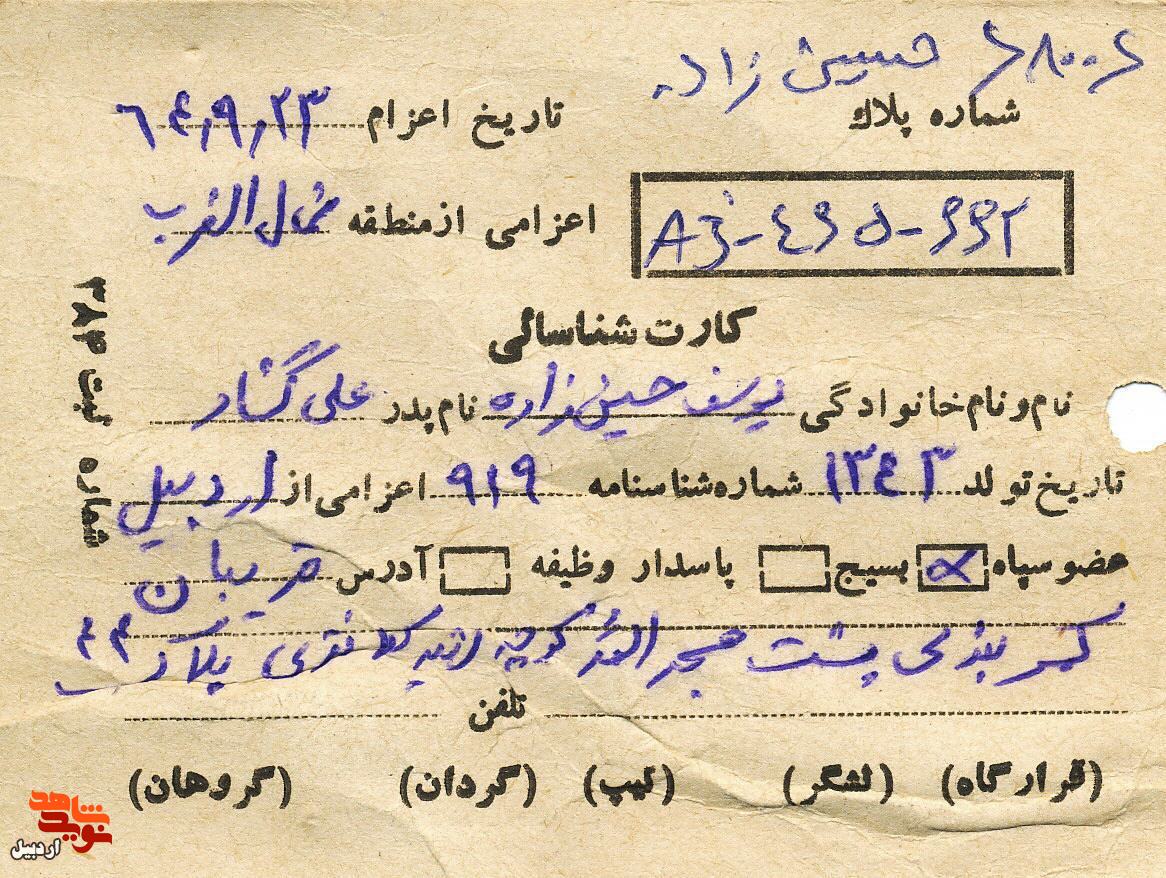 حسین زاده
شماره پلاک
تاریخ اعزام ۶۴٫۹٫۲۳
اعزامی از منطقه شمال الغرب
AJ-۴۶۵-۶۶۲
کارت شناسائی
نام و نام خانوادگی یوسف حسین زاده نام پدر علی
تاریخ تولد ۱۳۴۳ شماره شناسنامه ۹۱۹ اعزامی از اردبیل
عضو سپاه بسیج پاسدار وظیفه آدرس
کمربندی پشت مسجد کوچه کلانتری پلاک ۴۴
تلفن
(قرارگاه) (لشگر) (تیپ) (گردان) (گروهان)
شماره ثبت ۳۸۴
نوید شاهد
اردبیل